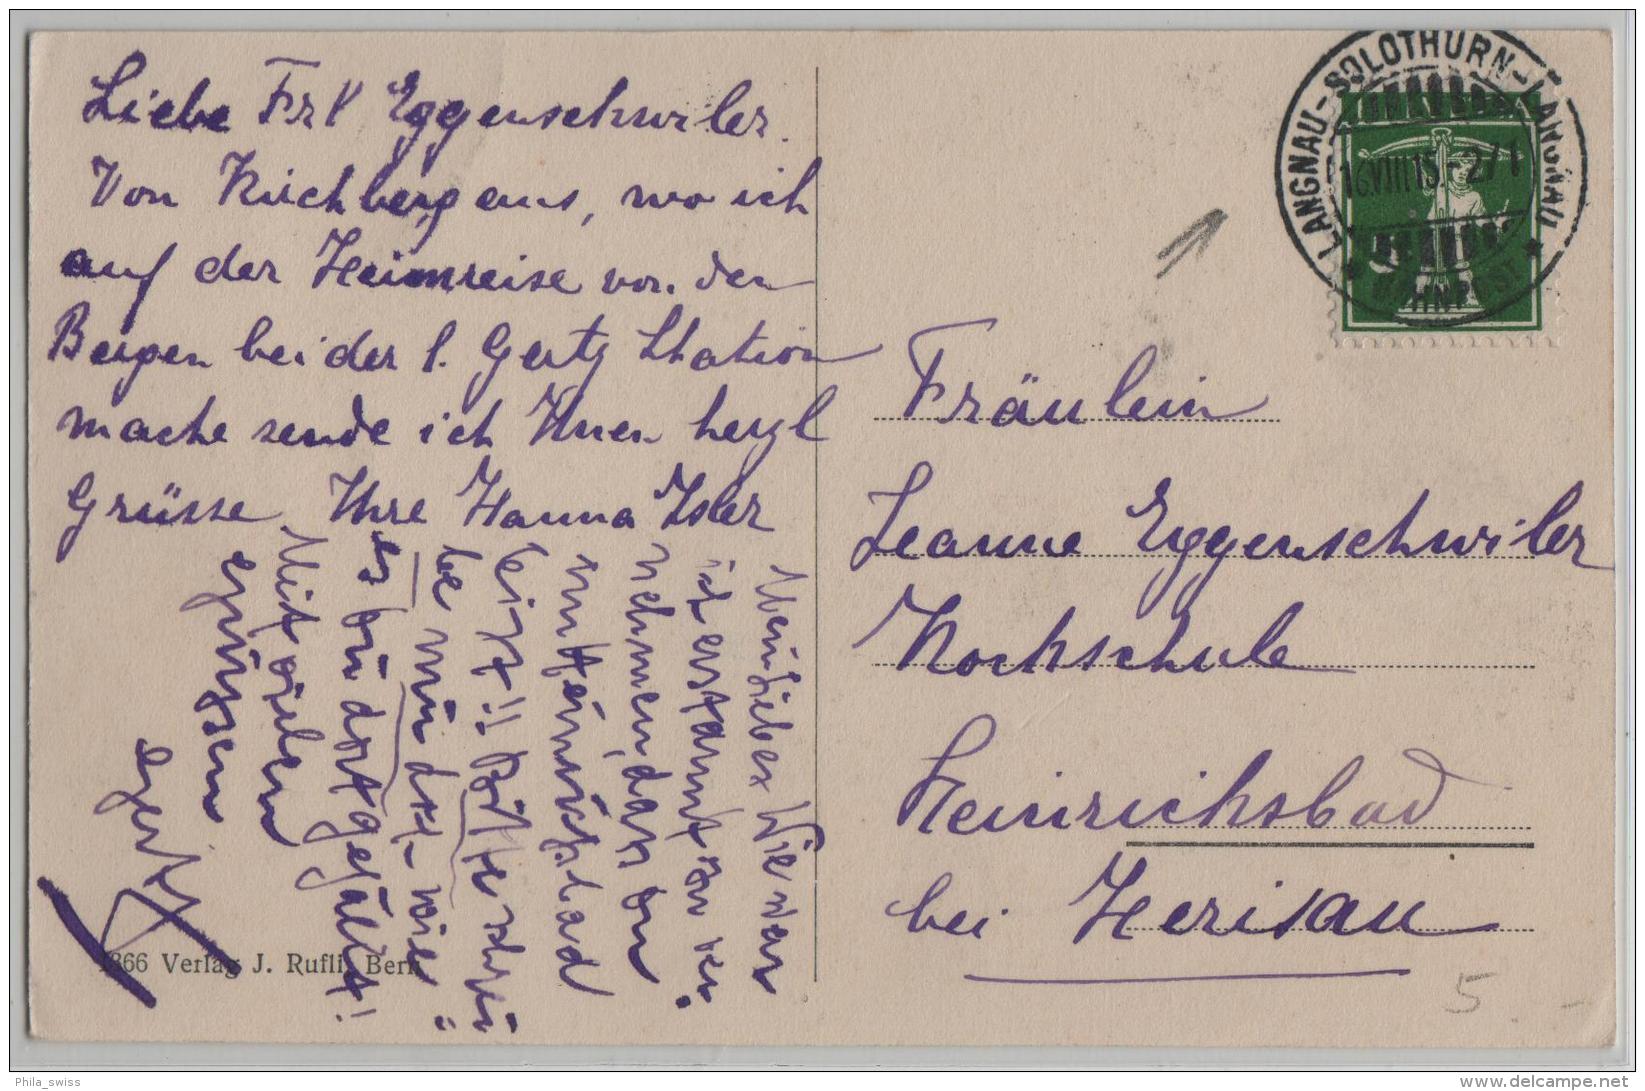 Liebe Frl Eggenschwiler.
Von Kirchberg aus, wo ich
auf der Heimreise von den
Bergen bei der l. Gerty Station
mache sende ich Ihnen herzl
Grüsse. Ihre Hanna Isler
Mein Lieber Wie war
ich erstaunt zu ver-
nehmen, dass
Heinrichsbad
Bitte schrei-
be mir dort wie
es dir dort gefällt!
Mit vielen
grüssen
Gerty
1366 Verlag J. Rufli, Bern
LANGNAU-SOLOTHURN-LANGNAU
16.VIII.15.-2/1
BAHNPOST
Fräulein
Jeanne Eggenschwiler
Kochschule
Heinrichsbad
bei Herisau
5 -
Phila_swiss
www.delcampe.net